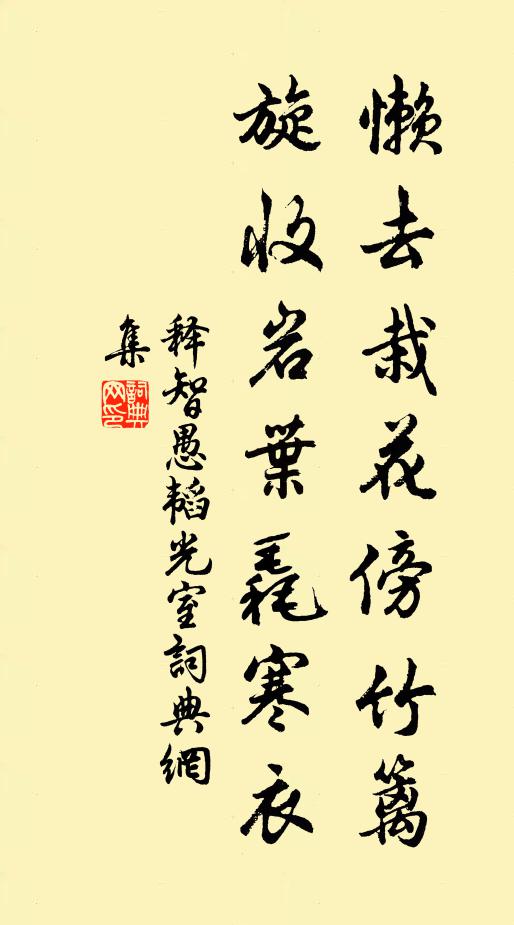 懶去栽花傍竹籬
旋收岩葉毳寒衣
释智愚韬光室詞典網
集
詞典網印